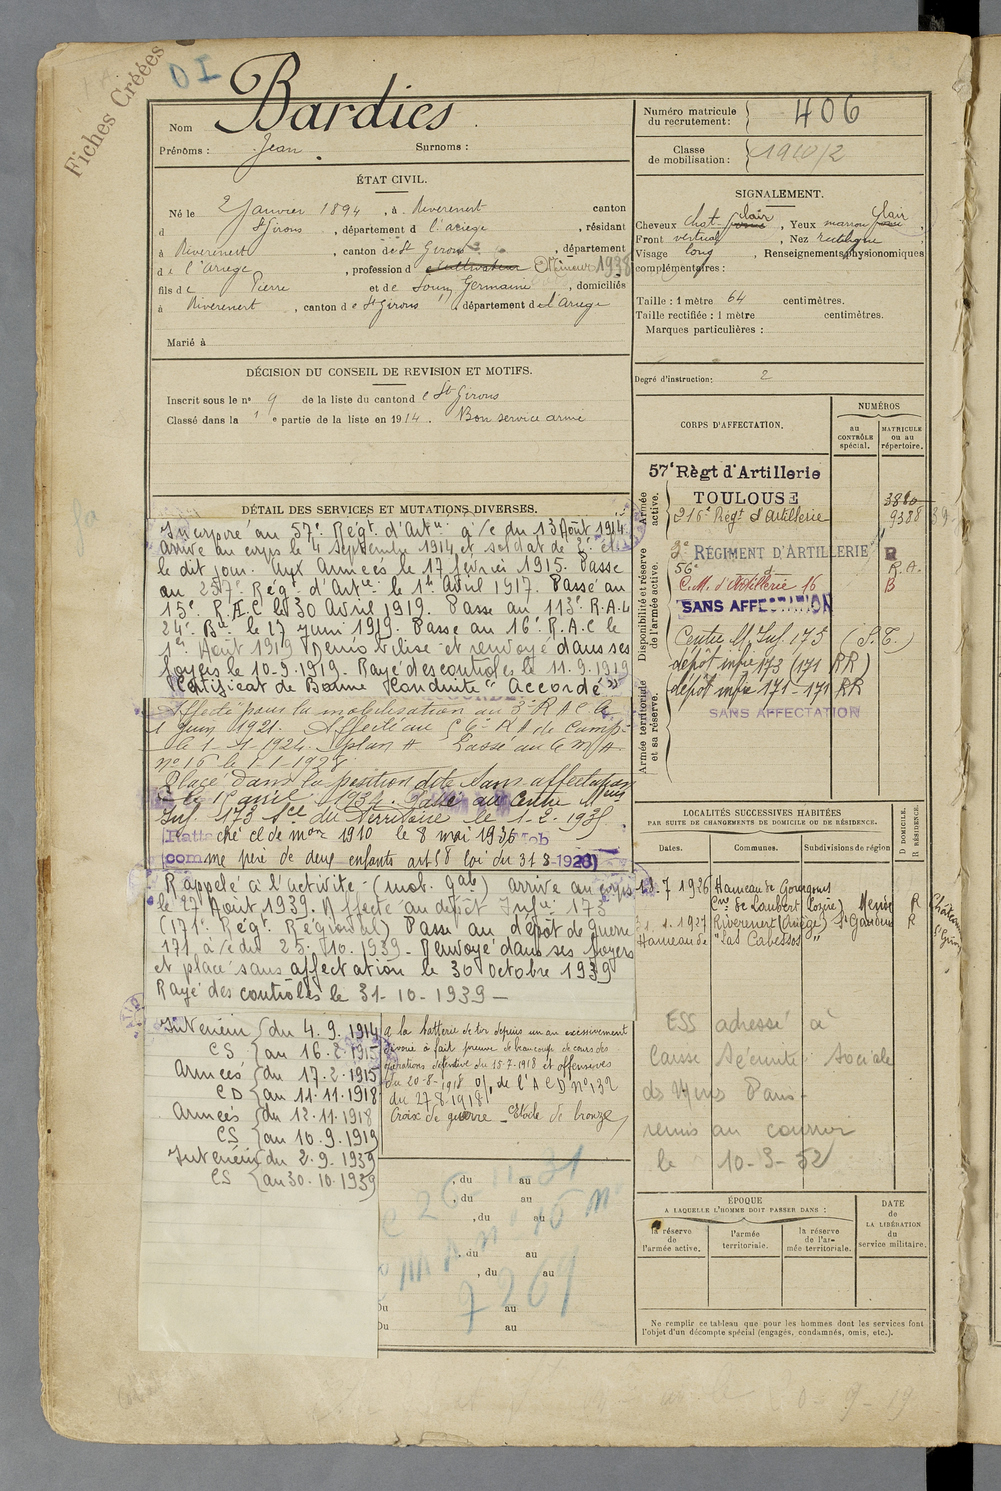 Fiches Créées
DI
Nom Bardies
Prénoms : Jean. Surnoms :
ÉTAT CIVIL.
Né le 2 Janvier 1894, à Riverenert canton
d St Girons, département d l'ariege, résidant
à Riverenert, canton de St Girons, département
de l'Ariege, profession d cultivateur Mineur 1938
fils de Pierre et de Soum Germaine, domiciliés
à Riverenert, canton de St Girons, département de l'Ariege
Marié à
DÉCISION DU CONSEIL DE REVISION ET MOTIFS.
Inscrit sous le n° 9 de la liste du canton de St Girons
Classé dans la 1e partie de la liste en 1914. Bon service armé
DÉTAIL DES SERVICES ET MUTATIONS DIVERSES.
Incorporé au 57e Régt d'Artie à /c du 13 Août 1914
arrivé au corps le 4 septembre 1914 et soldat de 2e cl.
le dit jour. Aux Armées le 17 février 1915. Passé
au 257e Régt d'Artie le 1er Avril 1917. Passé au
15e R.A.C le 30 Avril 1919. Passé au 113e R.A.L
24e Bie le 27 Juin 1919. Passé au 16e R.A.C le
1er Août 1919 Démobilisé et renvoyé dans ses
foyers le 10.9.1919. Rayé des contrôles le 11.9.1919
"Certificat de Bonne Conduite" Accordé"
Affecté pour la mobilisation au 3e R A C le
1 juin 1921. Affecté au 56e R A de camp.
le 1-1-1924. plan A Passé au C M A
n° 16 le 1-1-1928.
Placé dans la position dite sans affectation
le 15 avril 1934. Passé au Centre Mob
Inf. 173 Sce du Territoire le 1-2-1935
Rattaché cl de mon 1910 le 8 mai 1935
comme père de deux enfants art 58 loi du 31 3-1928)
Rappelé à l'activité (mob. gale) arrivé au corps
le 27 Août 1939. Affecté au dépôt Infie 173
(171e Régt Régional) Passé au dépôt de guerre
171 à /c du 25-10-1939. Renvoyé dans ses foyers
et placé sans affectation le 30 octobre 1939
Rayé des contrôles le 31-10-1939 —
Intérieur { du 4.9.1914
CS { au 16.2.1915
Armées { du 17.2.1915
CD { au 11.11.1918
Armées { du 12.11.1918
CS { au 10.9.1919
Intérieur { du 2.9.1939
CS { au 30.10.1939
a la batterie de tir depuis un an excessivement
dévoué a fait preuve de beaucoup de cours des
opérations défensive du 15.7.1918 et offensives
du 20-8-1918 O/ de l'A C D n° 132
du 27 8 1918
Croix de guerre _ Etoile de bronze
, du au
, du au
, du au
, du au
, du au
Du au
Du au
26-11-31
n° 16
7269
Numéro matricule du recrutement : 406
Classe de mobilisation : 1910/2
SIGNALEMENT.
Cheveux chat. clair, Yeux marron clair,
Front vertical, Nez rectiligne
Visage long, Renseignements physionomiques
complémentaires :
Taille : 1 mètre 64 centimètres.
Taille rectifiée : 1 mètre centimètres.
Marques particulières :
Degré d'instruction : 2
CORPS D'AFFECTATION.
NUMÉROS
au CONTRÔLE spécial.
MATRICULE ou au répertoire.
Armée active.
57e Règt d'Artillerie
TOULOUSE 3880
216e Régt d'Artillerie 9388
Disponibilité et réserve de l'armée active.
3e RÉGIMENT D'ARTILLERIE R
56e d° R.A.
C.M. d'Artillerie 16 B
SANS AFFECTATION
Centre M. Inf. 175 (S.T.)
dépôt infie 173 (171 RR)
dépôt infie 171 - 171 RR
SANS AFFECTATION
Armée territoriale et sa réserve.
LOCALITÉS SUCCESSIVES HABITÉES
PAR SUITE DE CHANGEMENTS DE DOMICILE OU DE RÉSIDENCE.
D DOMICILE.
R RÉSIDENCE.
Dates. Communes. Subdivisions de région
18.7 1926 Hameau de Gourgons
Cne de Laubert (Lozère) Mende R
1.1.1927 Riverenert (Ariège) St Gaudens R
Hameau de "Las Cabesses"
ESS adressé à
Caisse Sécurité Sociale
des Mines Paris-
remis au courrier
le 10-3-52
ÉPOQUE
A LAQUELLE L'HOMME DOIT PASSER DANS :
DATE de LA LIBÉRATION du service militaire.
la réserve de l'armée active.
l'armée territoriale.
la réserve de l'armée territoriale.
Ne remplir ce tableau que pour les hommes dont les services font
l'objet d'un décompte spécial (engagés, condamnés, omis, etc.).